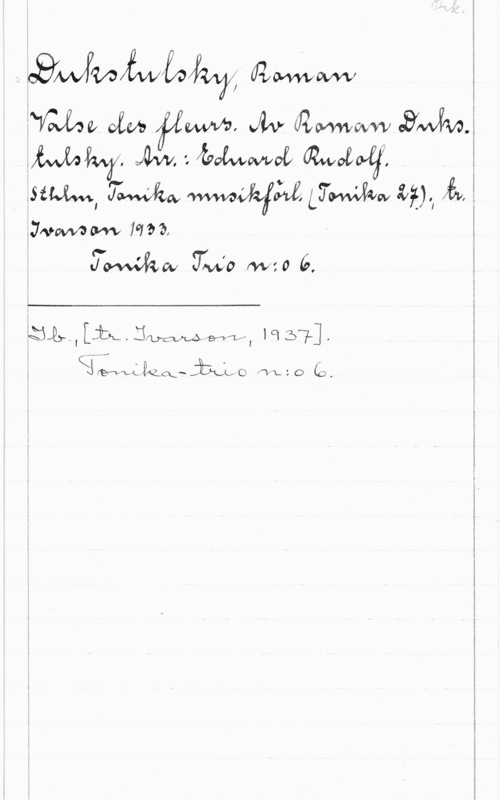 Ork.
Dukstulsky, Roman
Valse des fleurs. Av Roman Duks-
tulsky. Arr.: Eduard Rudolf.
Sthlm, Tonika musikförl. (Tonika 27); tr.
Ivarson 1933.
Tonika Trio n:o 6.
Ib., [tr. Ivarson, 1937].
Tonika-trio n:o 6.